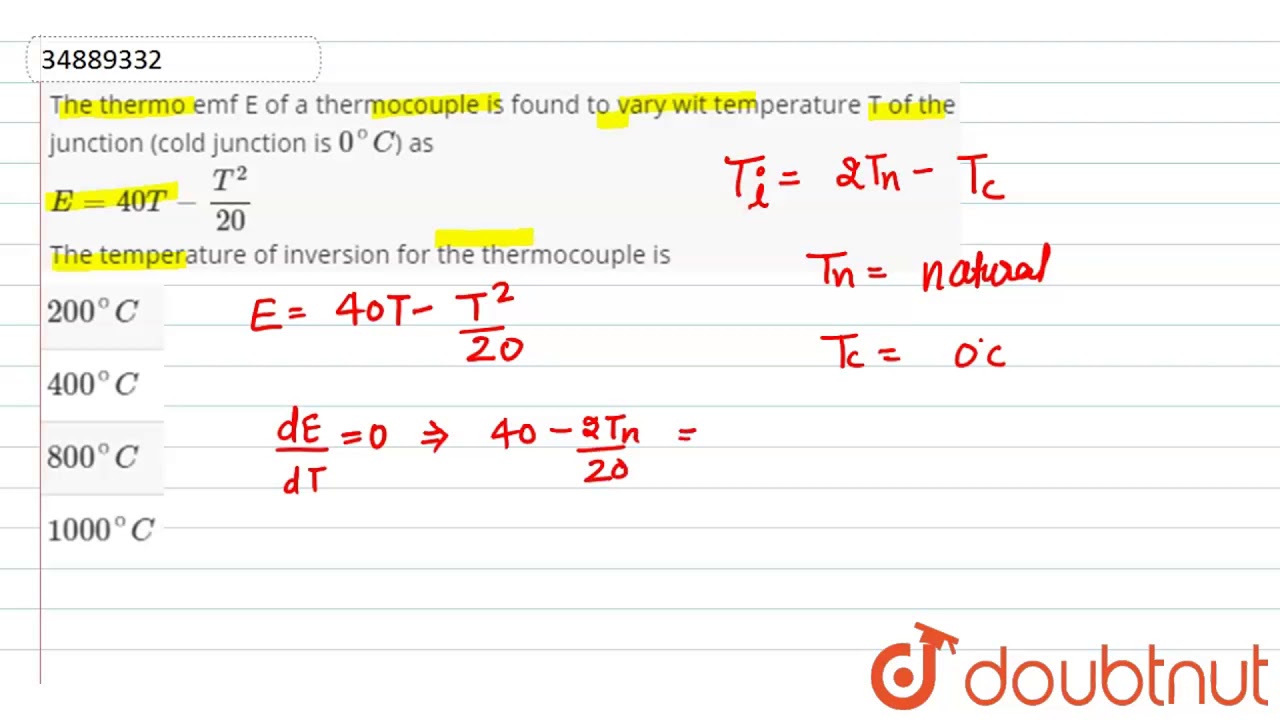 34889332
The thermo emf E of a thermocouple is found to vary wit temperature T of the
junction (cold junction is 0°C) as
E = 40T − T²/20
The temperature of inversion for the thermocouple is
200°C
400°C
800°C
1000°C
Ti = 2Tn − Tc
Tn = natural
Tc = 0°C
E = 40T − T²/20
dE/dT = 0 ⇒ 40 − 2Tn/20 =
doubtnut